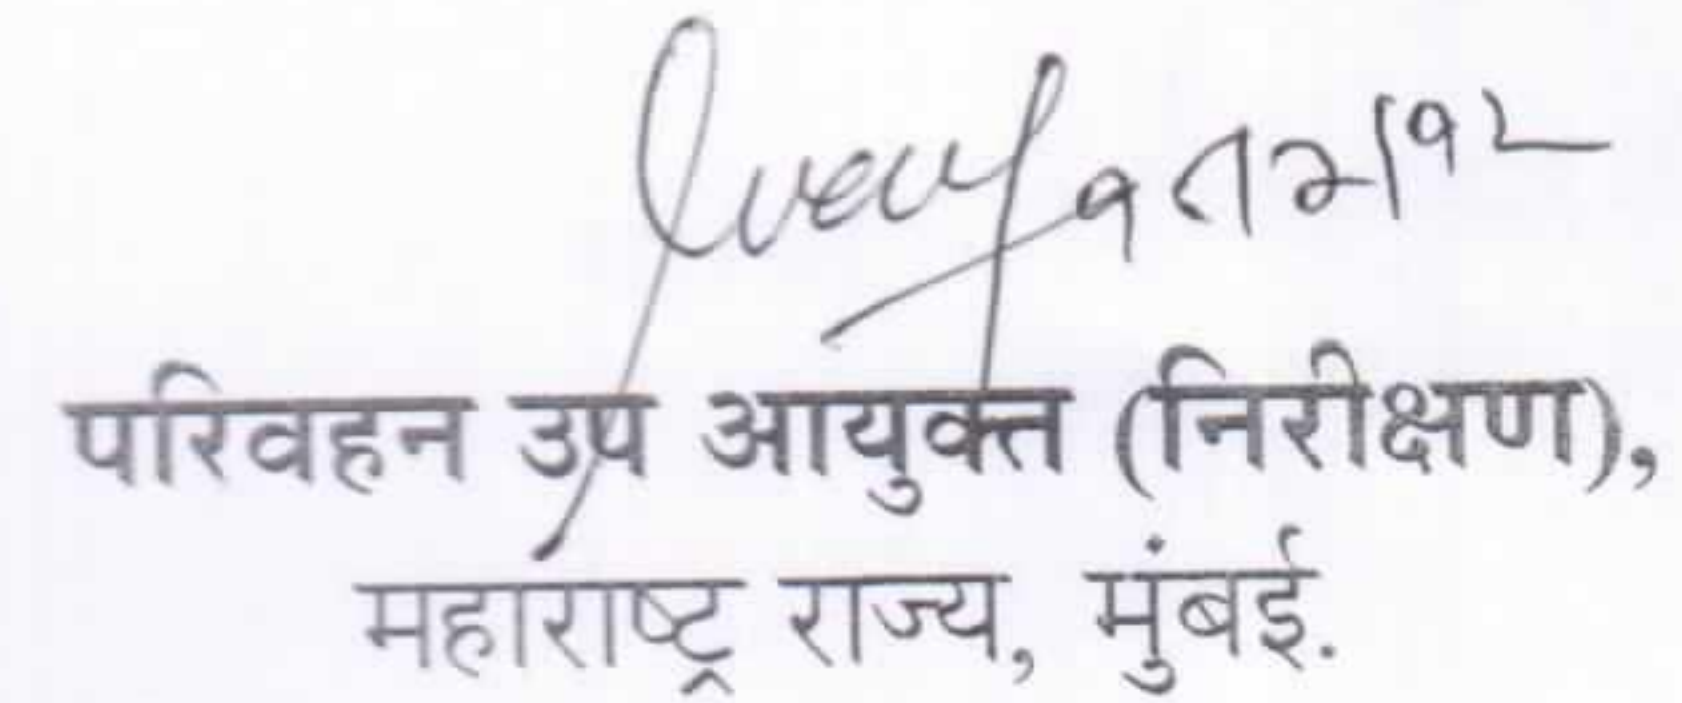 परिवहन उप आयुक्त (निरीक्षण),
महाराष्ट्र राज्य, मुंबई.